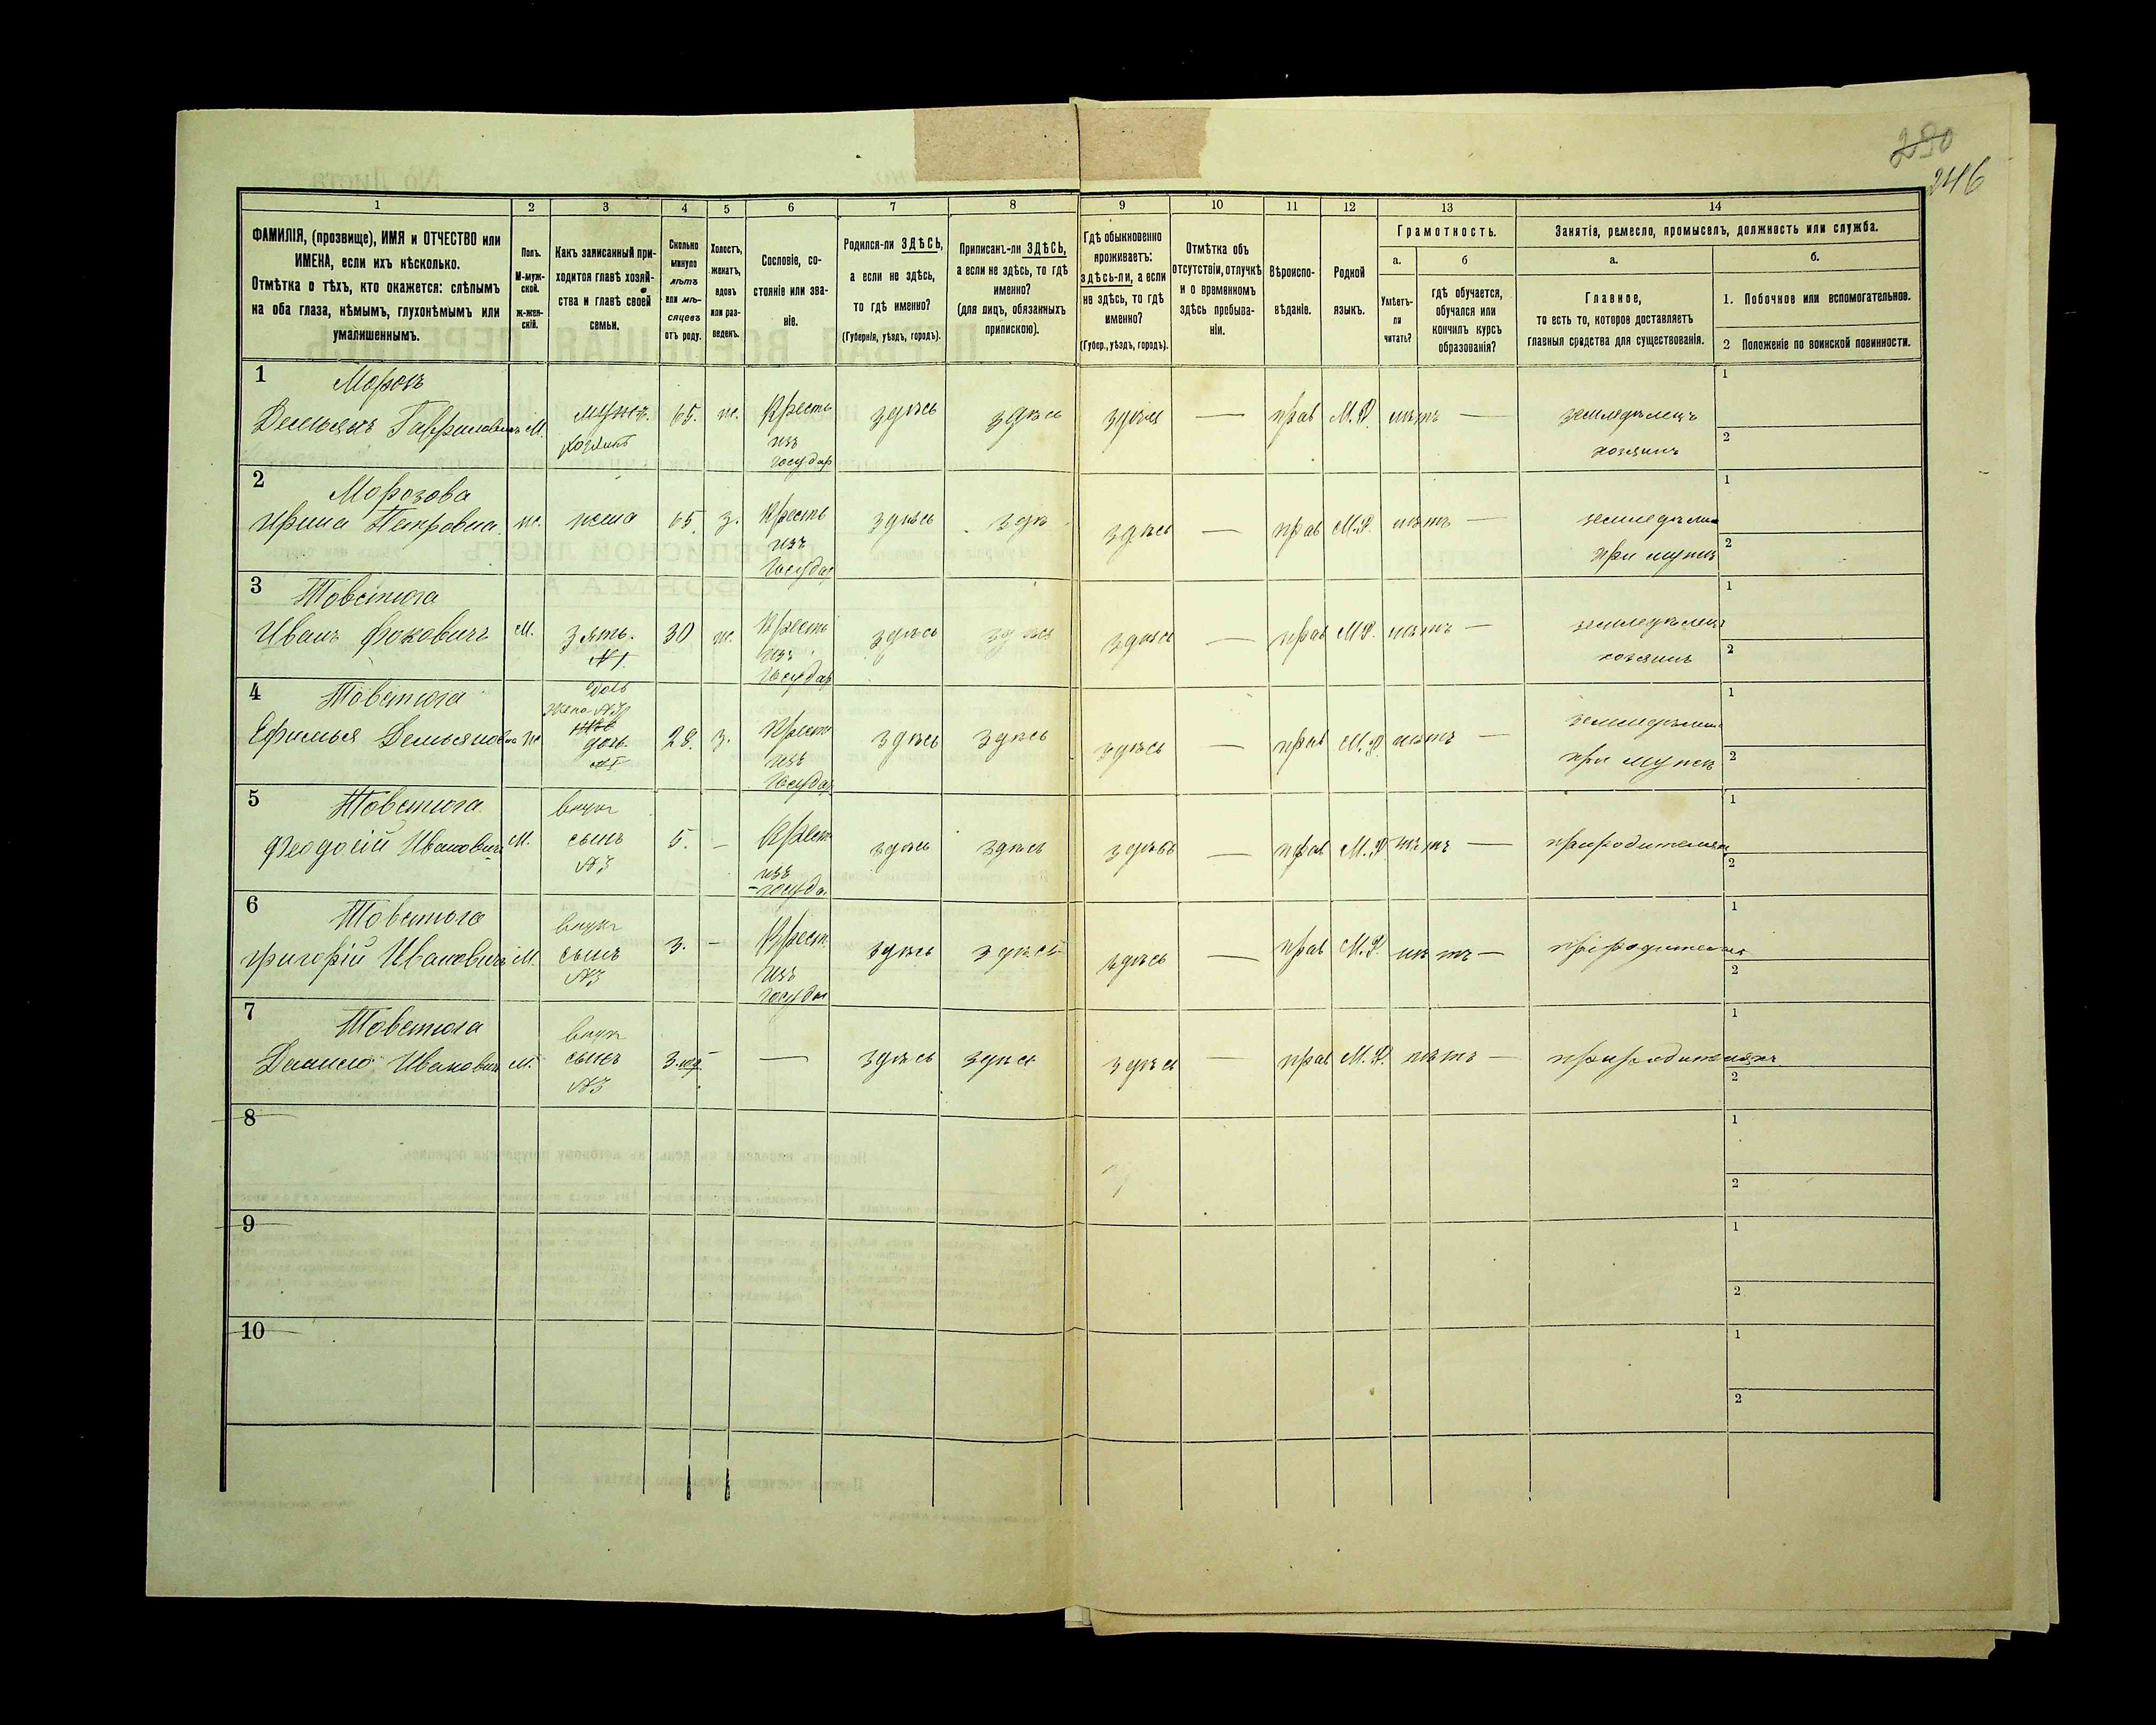 290
246
1 2 3 4 5 6 7 8 9 10 11 12 13 14
ФАМИЛІЯ, (прозвище), ИМЯ и ОТЧЕСТВО или
ИМЕНА, если ихъ нѣсколько.
Отмѣтка о тѣхъ, кто окажется: слѣпымъ
на оба глаза, нѣмымъ, глухонѣмымъ или
умалишеннымъ.
Полъ.
М-муж-
ской.
ж-жен-
скій.
Какъ записанный при-
ходится главѣ хозяй-
ства и главѣ своей
семьи.
Сколько
минуло
лѣтъ
или мѣ-
сяцевъ
отъ роду.
Холостъ,
женатъ,
вдовъ
или раз-
веденъ.
Сословіе, со-
стояніе или зва-
ніе.
Родился-ли ЗДѢСЬ,
а если не здѣсь,
то гдѣ именно?
(Губернія, уѣздъ, городъ).
Приписанъ-ли ЗДѢСЬ,
а если не здѣсь, то гдѣ
именно?
(для лицъ, обязанныхъ
припискою).
Гдѣ обыкновенно
проживаетъ:
здѣсь-ли, а если
не здѣсь, то гдѣ
именно?
(Губер., уѣздъ, городъ).
Отмѣтка объ
отсутствіи, отлучкѣ
и о временномъ
здѣсь пребыва-
ніи.
Вѣроиспо-
вѣданіе.
Родной
языкъ.
Грамотность.
а.
Умѣетъ-
ли
читать?
б
гдѣ обучается,
обучался или
кончилъ курсъ
образованія?
Занятія, ремесло, промыселъ, должность или служба.
а.
Главное,
то есть то, которое доставляетъ
главныя средства для существованія.
б.
1. Побочное или вспомогательное.
2 Положеніе по воинской повинности.
1 Морозъ
Демьянъ Гавриловичъ М. мужъ. 65. ж. Крестъ здѣсь здѣсь здѣся — прав М.Р. нѣтъ — земледѣлецъ 1
хозяинъ изъ государ хозяинъ 2
2 Морозова
Ирина Петровна. ж. жена 65 з. Кресть здѣсь здѣ здѣсь — прав М.Р. нѣтъ — земледѣли 1
изъ государ при мужѣ 2
3 Товстюга
Иванъ Фоковичъ М. зять. 30 ж. Кресть здѣсь здѣсь здѣсь — прав М.Р. нѣтъ — земледѣлец 1
№1 изъ государ хозяинъ 2
4 Товстюга дочь
жена №3
Ефимья Демьяновна ж дочь 28. з. Крест здѣсь здѣсь здѣсь — прав М.Р. нѣтъ — земледѣли 1
№1 изъ государ при мужѣ 2
5 Товстюга внукъ
Феодосій Ивановичъ М. сынъ 5. — Крест здѣсь здѣсь здѣсь — прав М.Р. нѣтъ — при родителях 1
№3 изъ госуда. 2
6 Товстюга внукъ
Григорій Ивановичъ М. сынъ 3. — Крест. здѣсь здѣсь здѣсь — прав М.Р. нѣтъ — при родителях 1
№3 изъ государ 2
7 Товстюга внукъ
Данило Ивановичъ М. сынъ 3.мѣ — здѣсь здѣсь здѣсь — прав М.Р. нѣтъ — при родителяхъ 1
№3 2
8 1
2
9 1
2
10 1
2